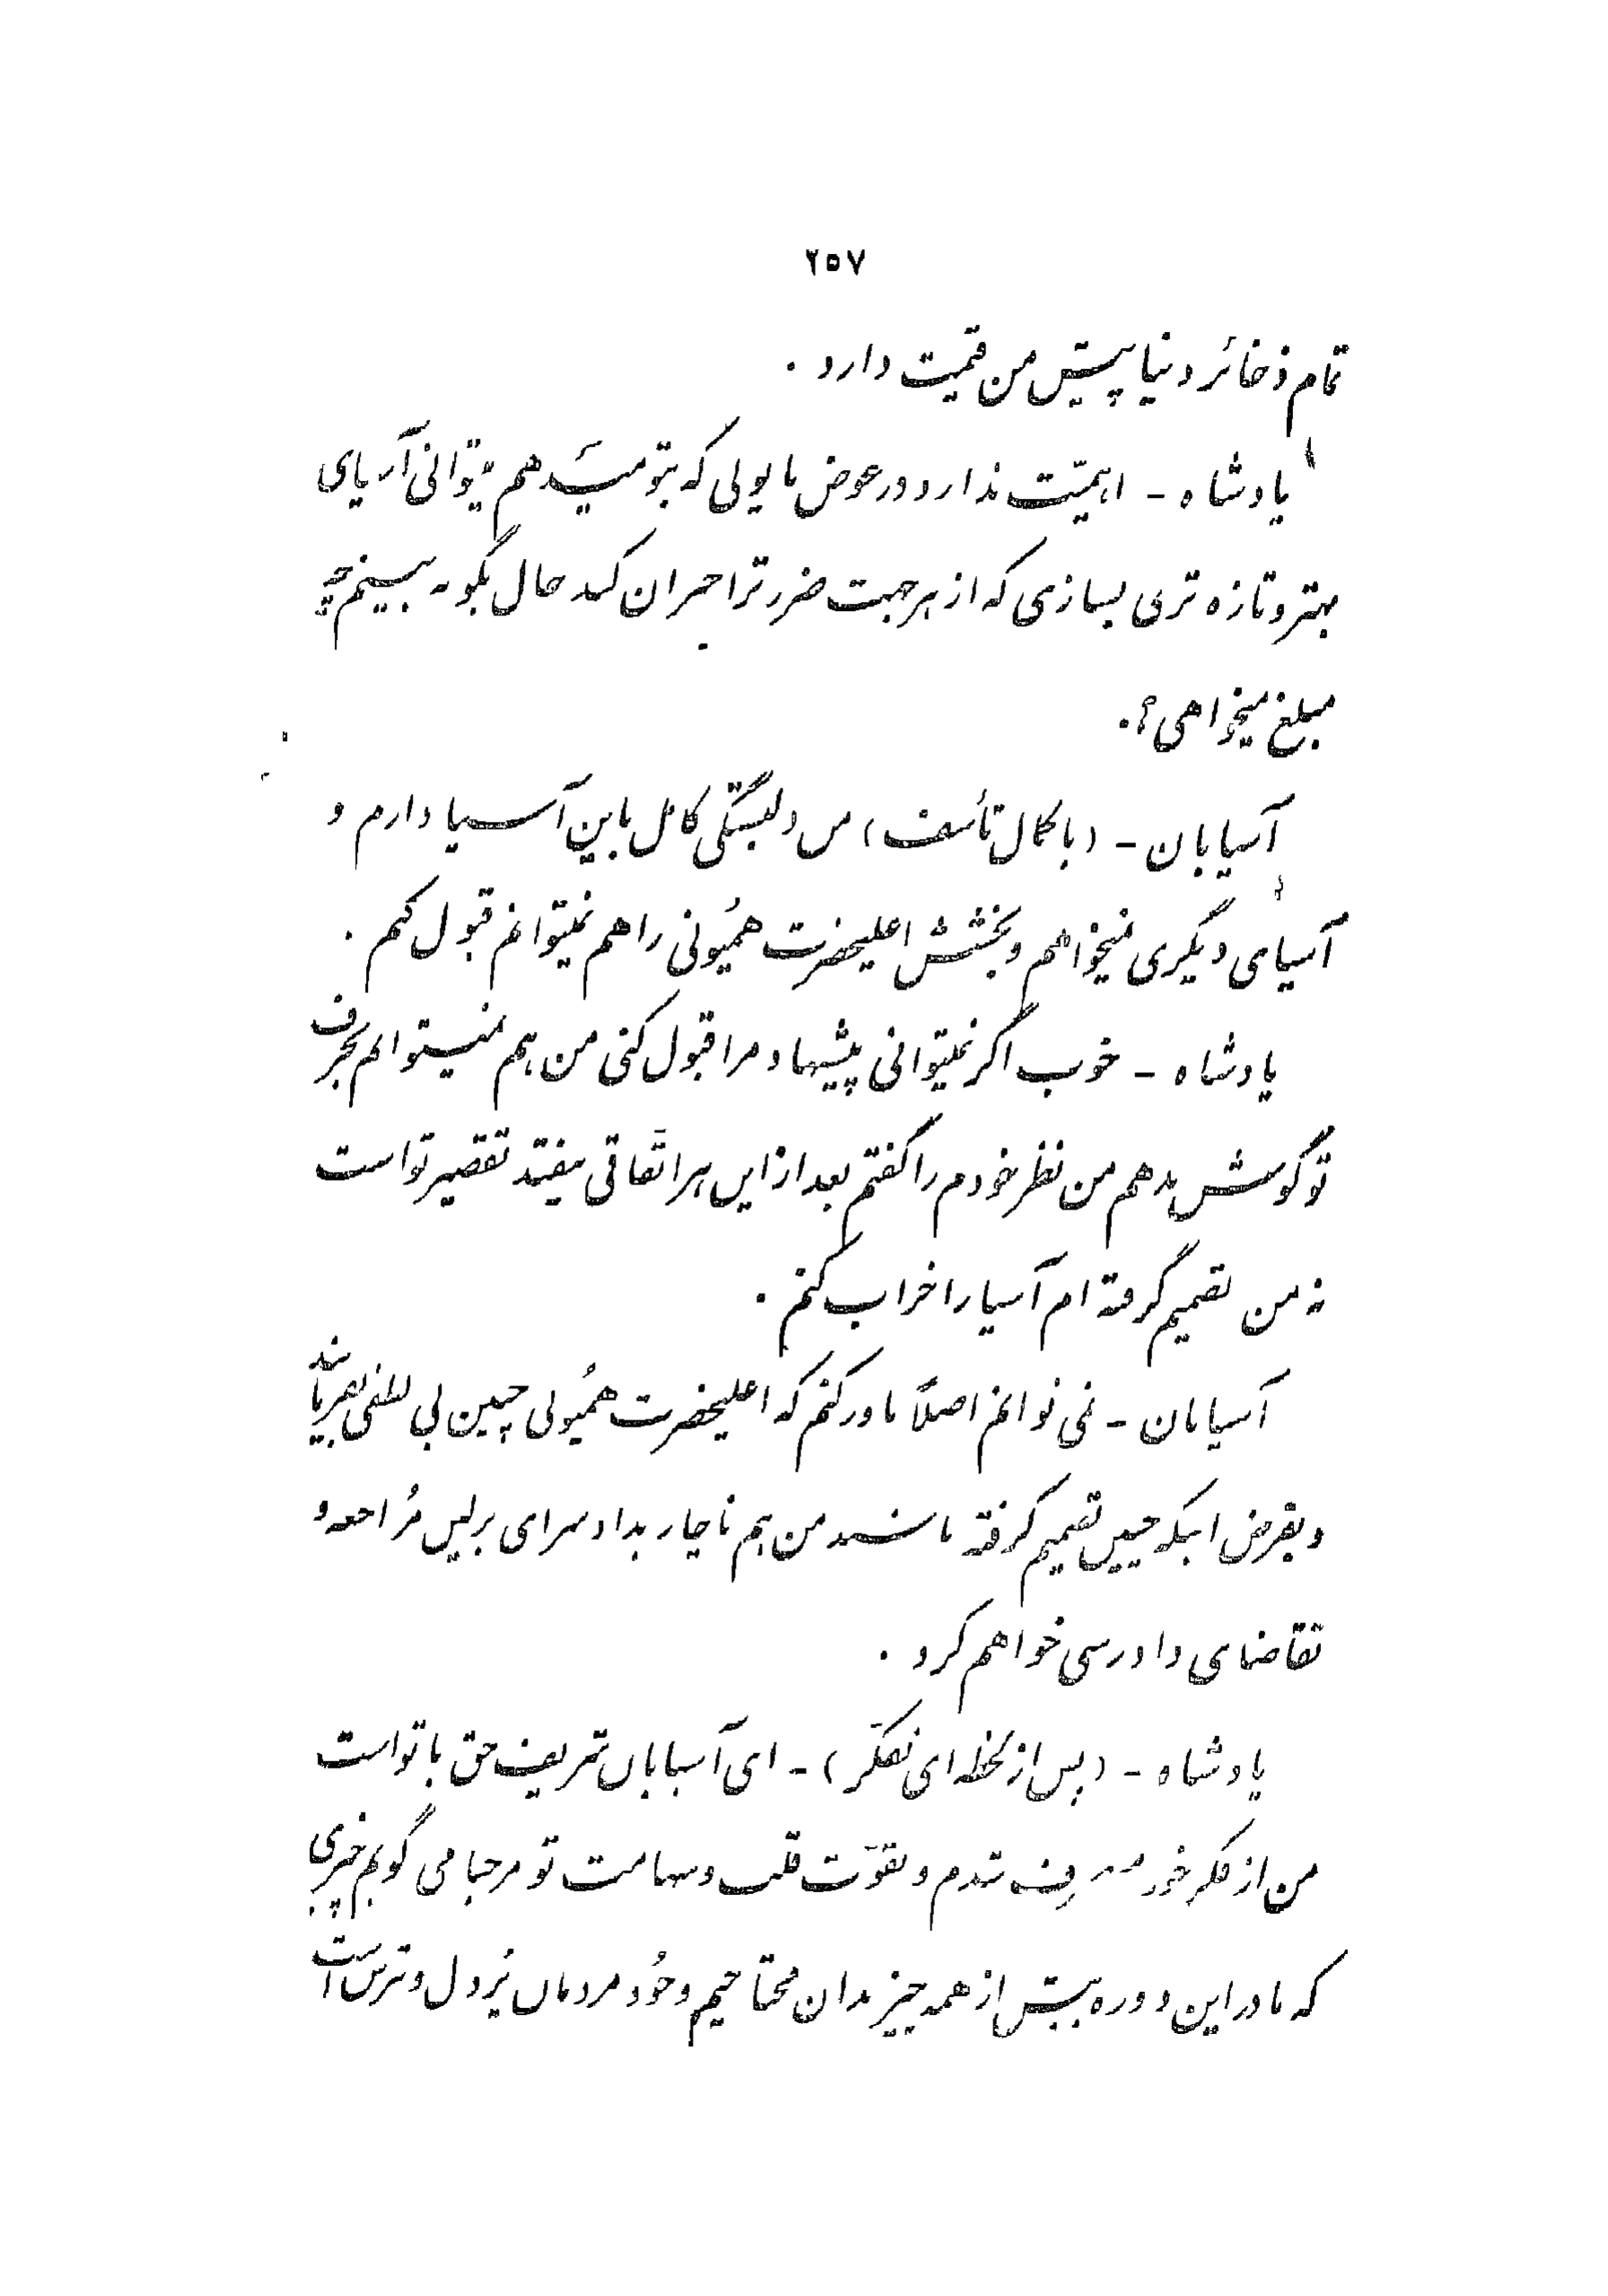 ۲۵۷
تمام ذخائر دنیا پیش من قیمت دارد .
پادشاه - اهمیّت ندارد در عوض با پولی که بتو میدهم میتوانی آسیای
بهتر و تازه تری بسازی که از هر جهت ضرر ترا جبران کند حال بگو به بینم چه
مبلغ میخواهی ؟.
آسیابان - (با کمال تأسف) من دلبستگی کامل باین آسیا دارم و
آسیای دیگری نمیخواهم و بخشش اعلیحضرت همیونی را هم نمیتوانم قبول کنم .
پادشاه - خوب اگر نمیتوانی پیشنهاد مرا قبول کنی من هم نمیتوانم بحرف
تو گوش بدهم من نظر خودم را گفتم بعد از این هر اتّفاقی بیفتد تقصیر تو است
نه من تصمیم گرفته ام آسیا را خراب کنم .
آسیابان - نمی توانم اصلاً باور کنم که اعلیحضرت همیونی چنین بی لطفی بفرمایند
و بفرض اینکه چنین تصمیم گرفته باشند من هم ناچار بدادسرای برلین مراجعه و
تقاضای دادرسی خواهم کرد .
پادشاه - (پس از لحظه ای تفکّر) - ای آسیابان شریف حق با تو است
من از فکر خود منصرف شدم و بقوّت قلب و شهامت تو مرحبا می گویم چیزی
که ما در این دوره بیش از همه چیز بدان محتاجیم وجود مردمان پُر دل و نترس است